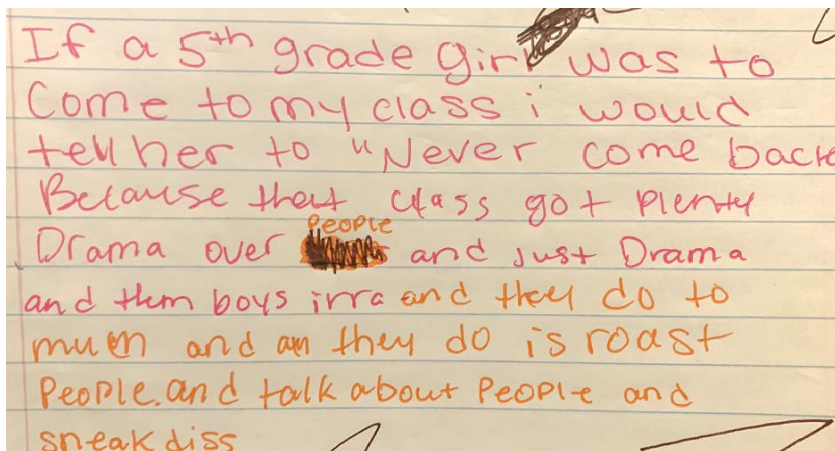 If a 5th grade girl was to
Come to my class i would
tell her to "Never come back
Because that class got plenty
Drama over People and just Drama
and them boys irra and they do to
much and all they do is roast
People. and talk about People and
sneak diss